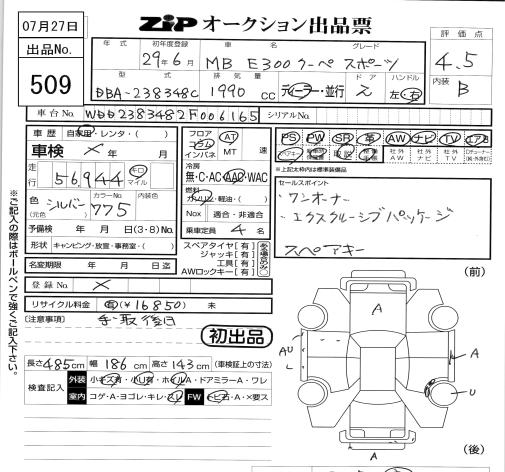 07月27日
出品No.
509
ZIP オークション出品票
年式 初年度登録 車名 グレード
29年6月 MB E300クーペ スポーツ
型式 排気量 ドア ハンドル
DBA-238348C 1990 cc ディーラー・並行 2 左・右
評価点
4.5
内装 B
車台No. WDD2383482F006165 シリアルNo.
車歴 自家用・レンタ・( )
車検 × 年 月
走行 56,944 キロ マイル
色 シルバー カラーNo. 775 内装色
(元色)
予備検 年 月 日(3・8)No.
形状 キャンピング・放宣・事務室・( )
名変期限 年 月 日迄
登録No. ×
リサイクル料金 有(¥16850) 未
注意事項
フロア コラム インパネ AT MT 速
冷房
無・C・AC・AAC・WAC
燃料
ガソリン・軽油・( )
Nox 適合・非適合
乗車定員 4 名
スペアタイヤ[有]
ジャッキ[有]
工具[有]
AWロックキー[有]
PS PW SR 革 AW ナビ TV エアB
社外AW 社外ナビ 社外TV
※上記太枠内は標準装備品
セールスポイント
・ワンオーナー
・エクスクルーシブパッケージ
スペアキー
初出品
長さ 485 cm 幅 186 cm 高さ 143 cm (車検証上の寸法)
検査記入 外装 小キズ有・小U有・ホイルA・ドアミラーA・ワレ
室内 コゲ・A・ヨゴレ・キレ・スレ FW トビ石・A・×要ス
※ご記入の際はボールペンで強くご記入下さい。
(前)
A
AU
L
A
U
A
(後)